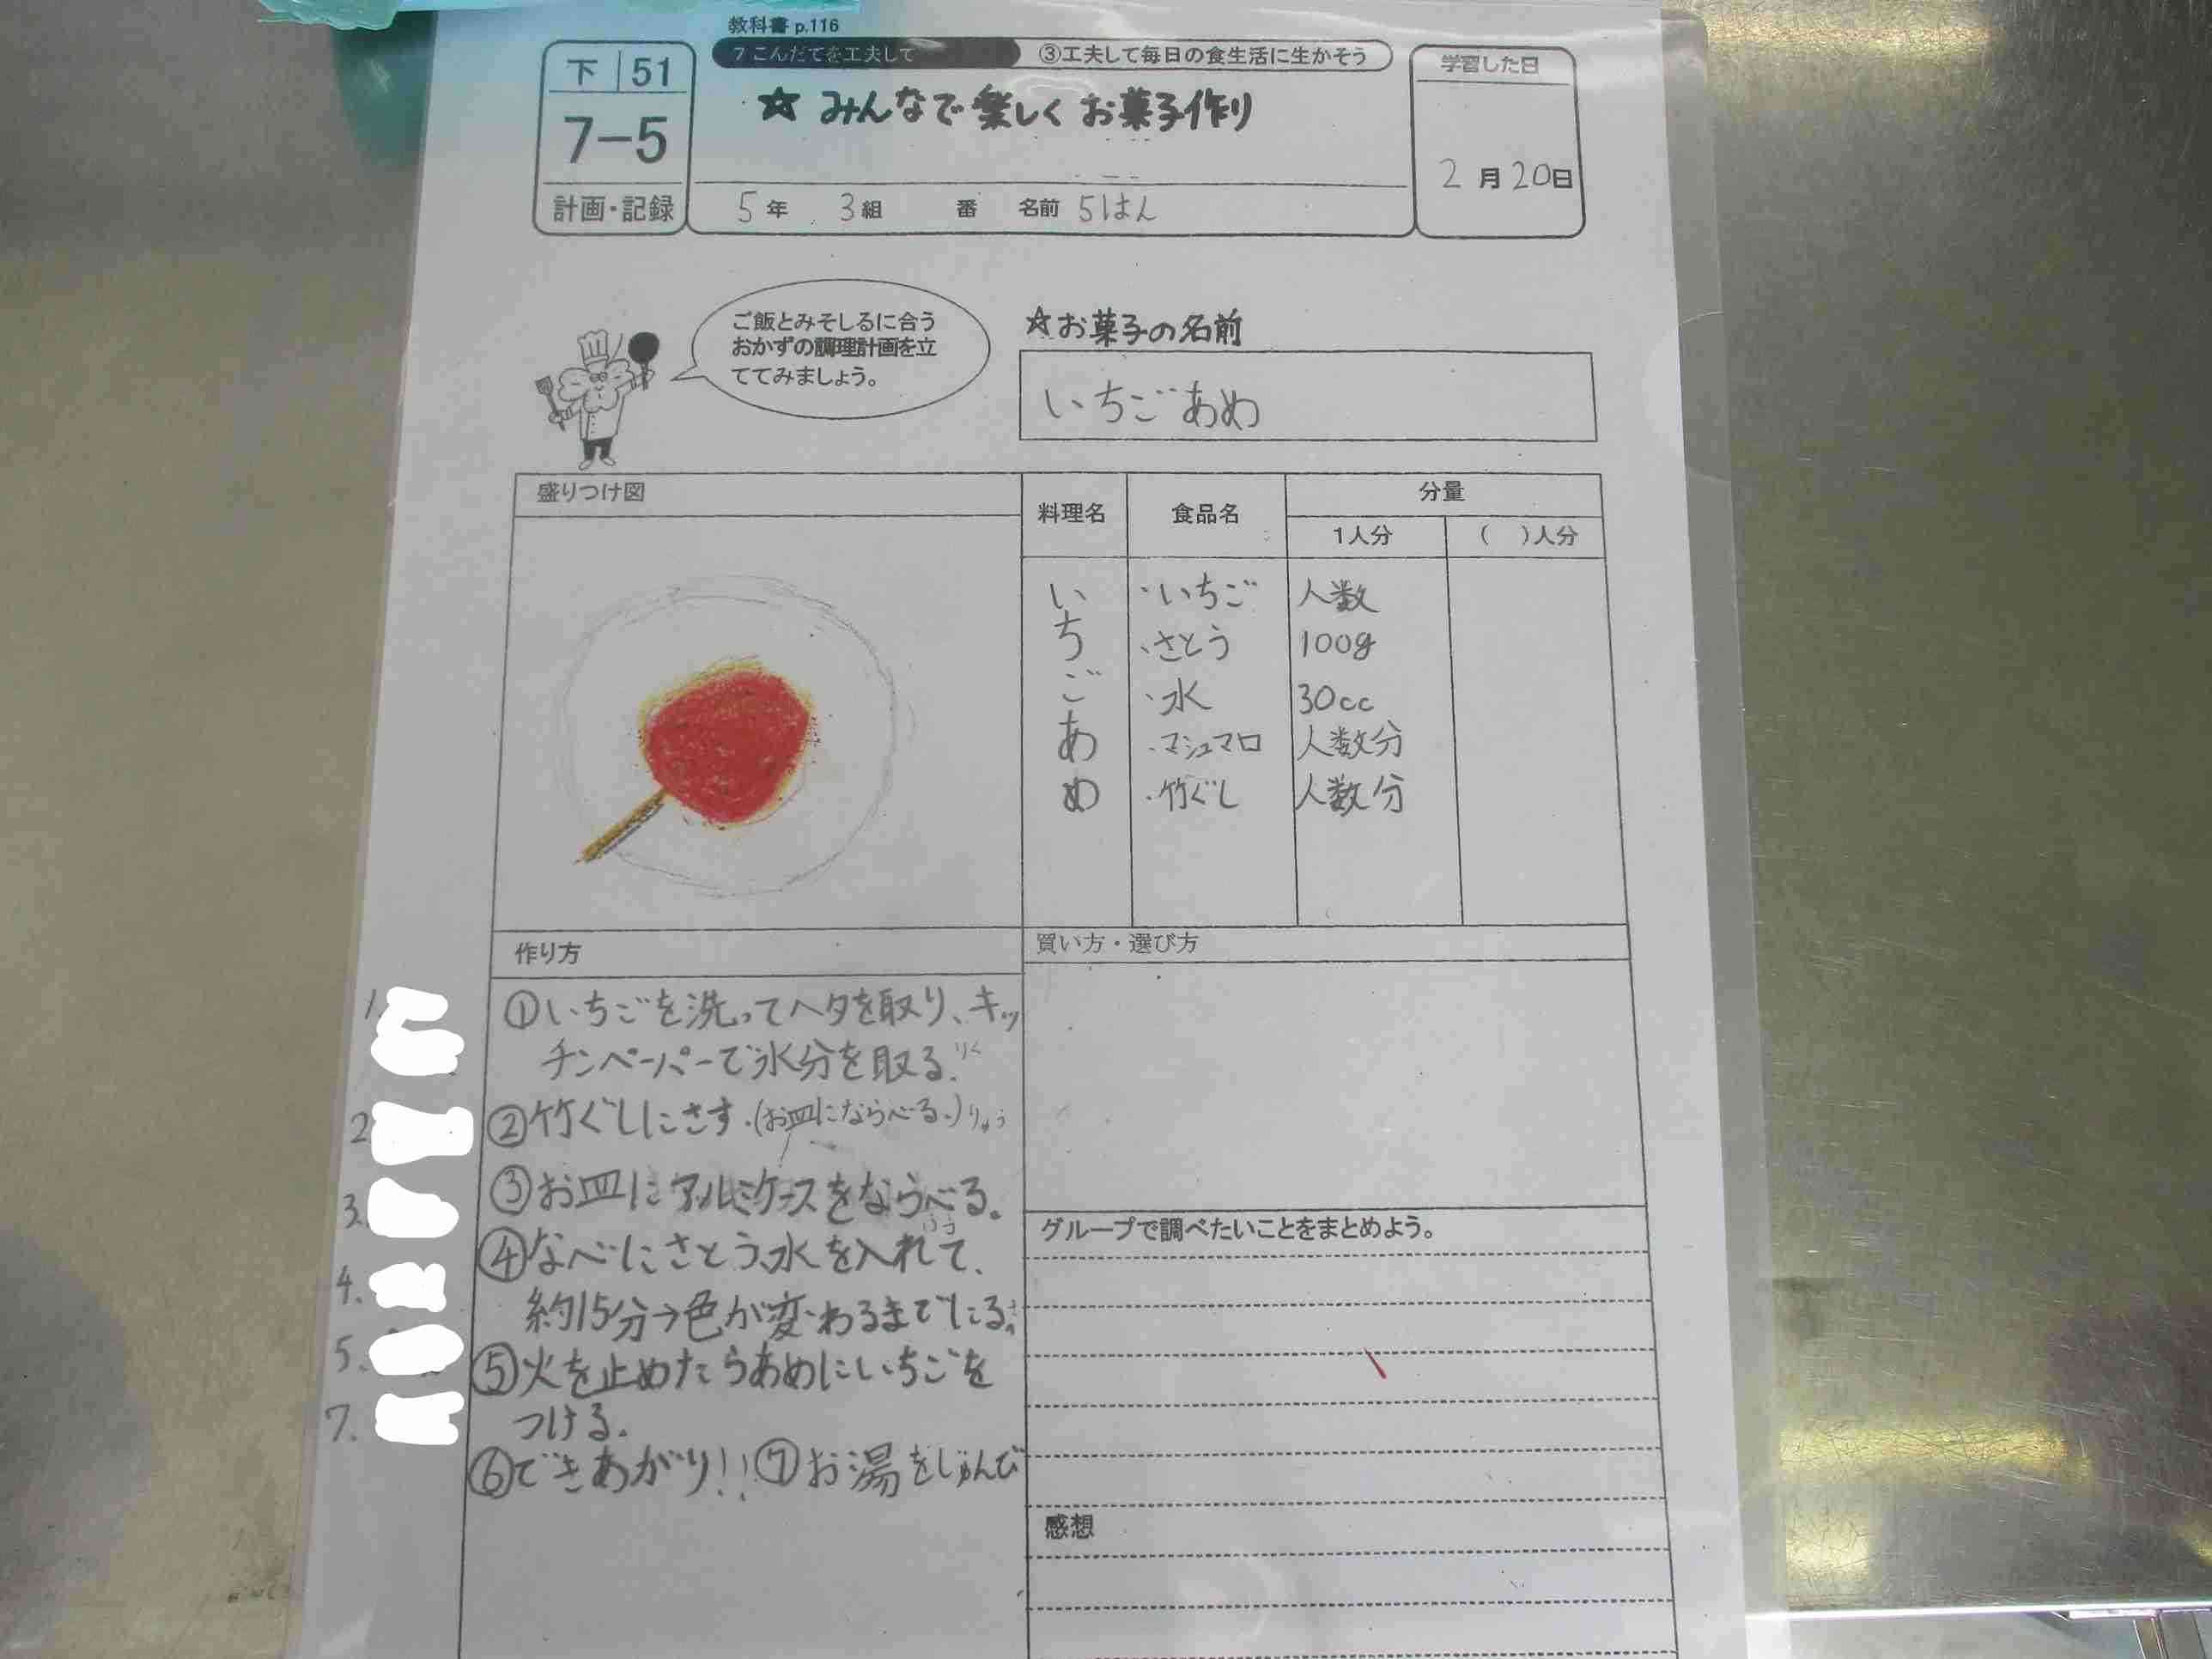 教科書 p.116
下 51
7-5
計画・記録
7 こんだてを工夫して
③工夫して毎日の食生活に生かそう
☆ みんなで楽しく お菓子作り
5年 3組 番 名前 5はん
学習した日
2月20日
ご飯とみそしるに合う
おかずの調理計画を立
ててみましょう。
☆お菓子の名前
いちごあめ
盛りつけ図
料理名 食品名 分量
1人分 ( )人分
いちごあめ
・いちご 人数
・さとう 100g
・水 30cc
・マシュマロ 人数分
・竹ぐし 人数分
作り方
1.
2
3.
4.
5.
7.
①いちごを洗ってヘタを取り、キッ
チンペーパーで水分を取る. りく
②竹ぐしにさす.(お皿にならべる.) りょう
③お皿にアルミケースをならべる。
④なべにさとう、水を入れて、
約15分→色が変わるまでにる.
⑤火を止めたらあめにいちごを
つける.
⑥できあがり!! ⑦お湯をじゅんび
買い方・選び方
グループで調べたいことをまとめよう。
感想